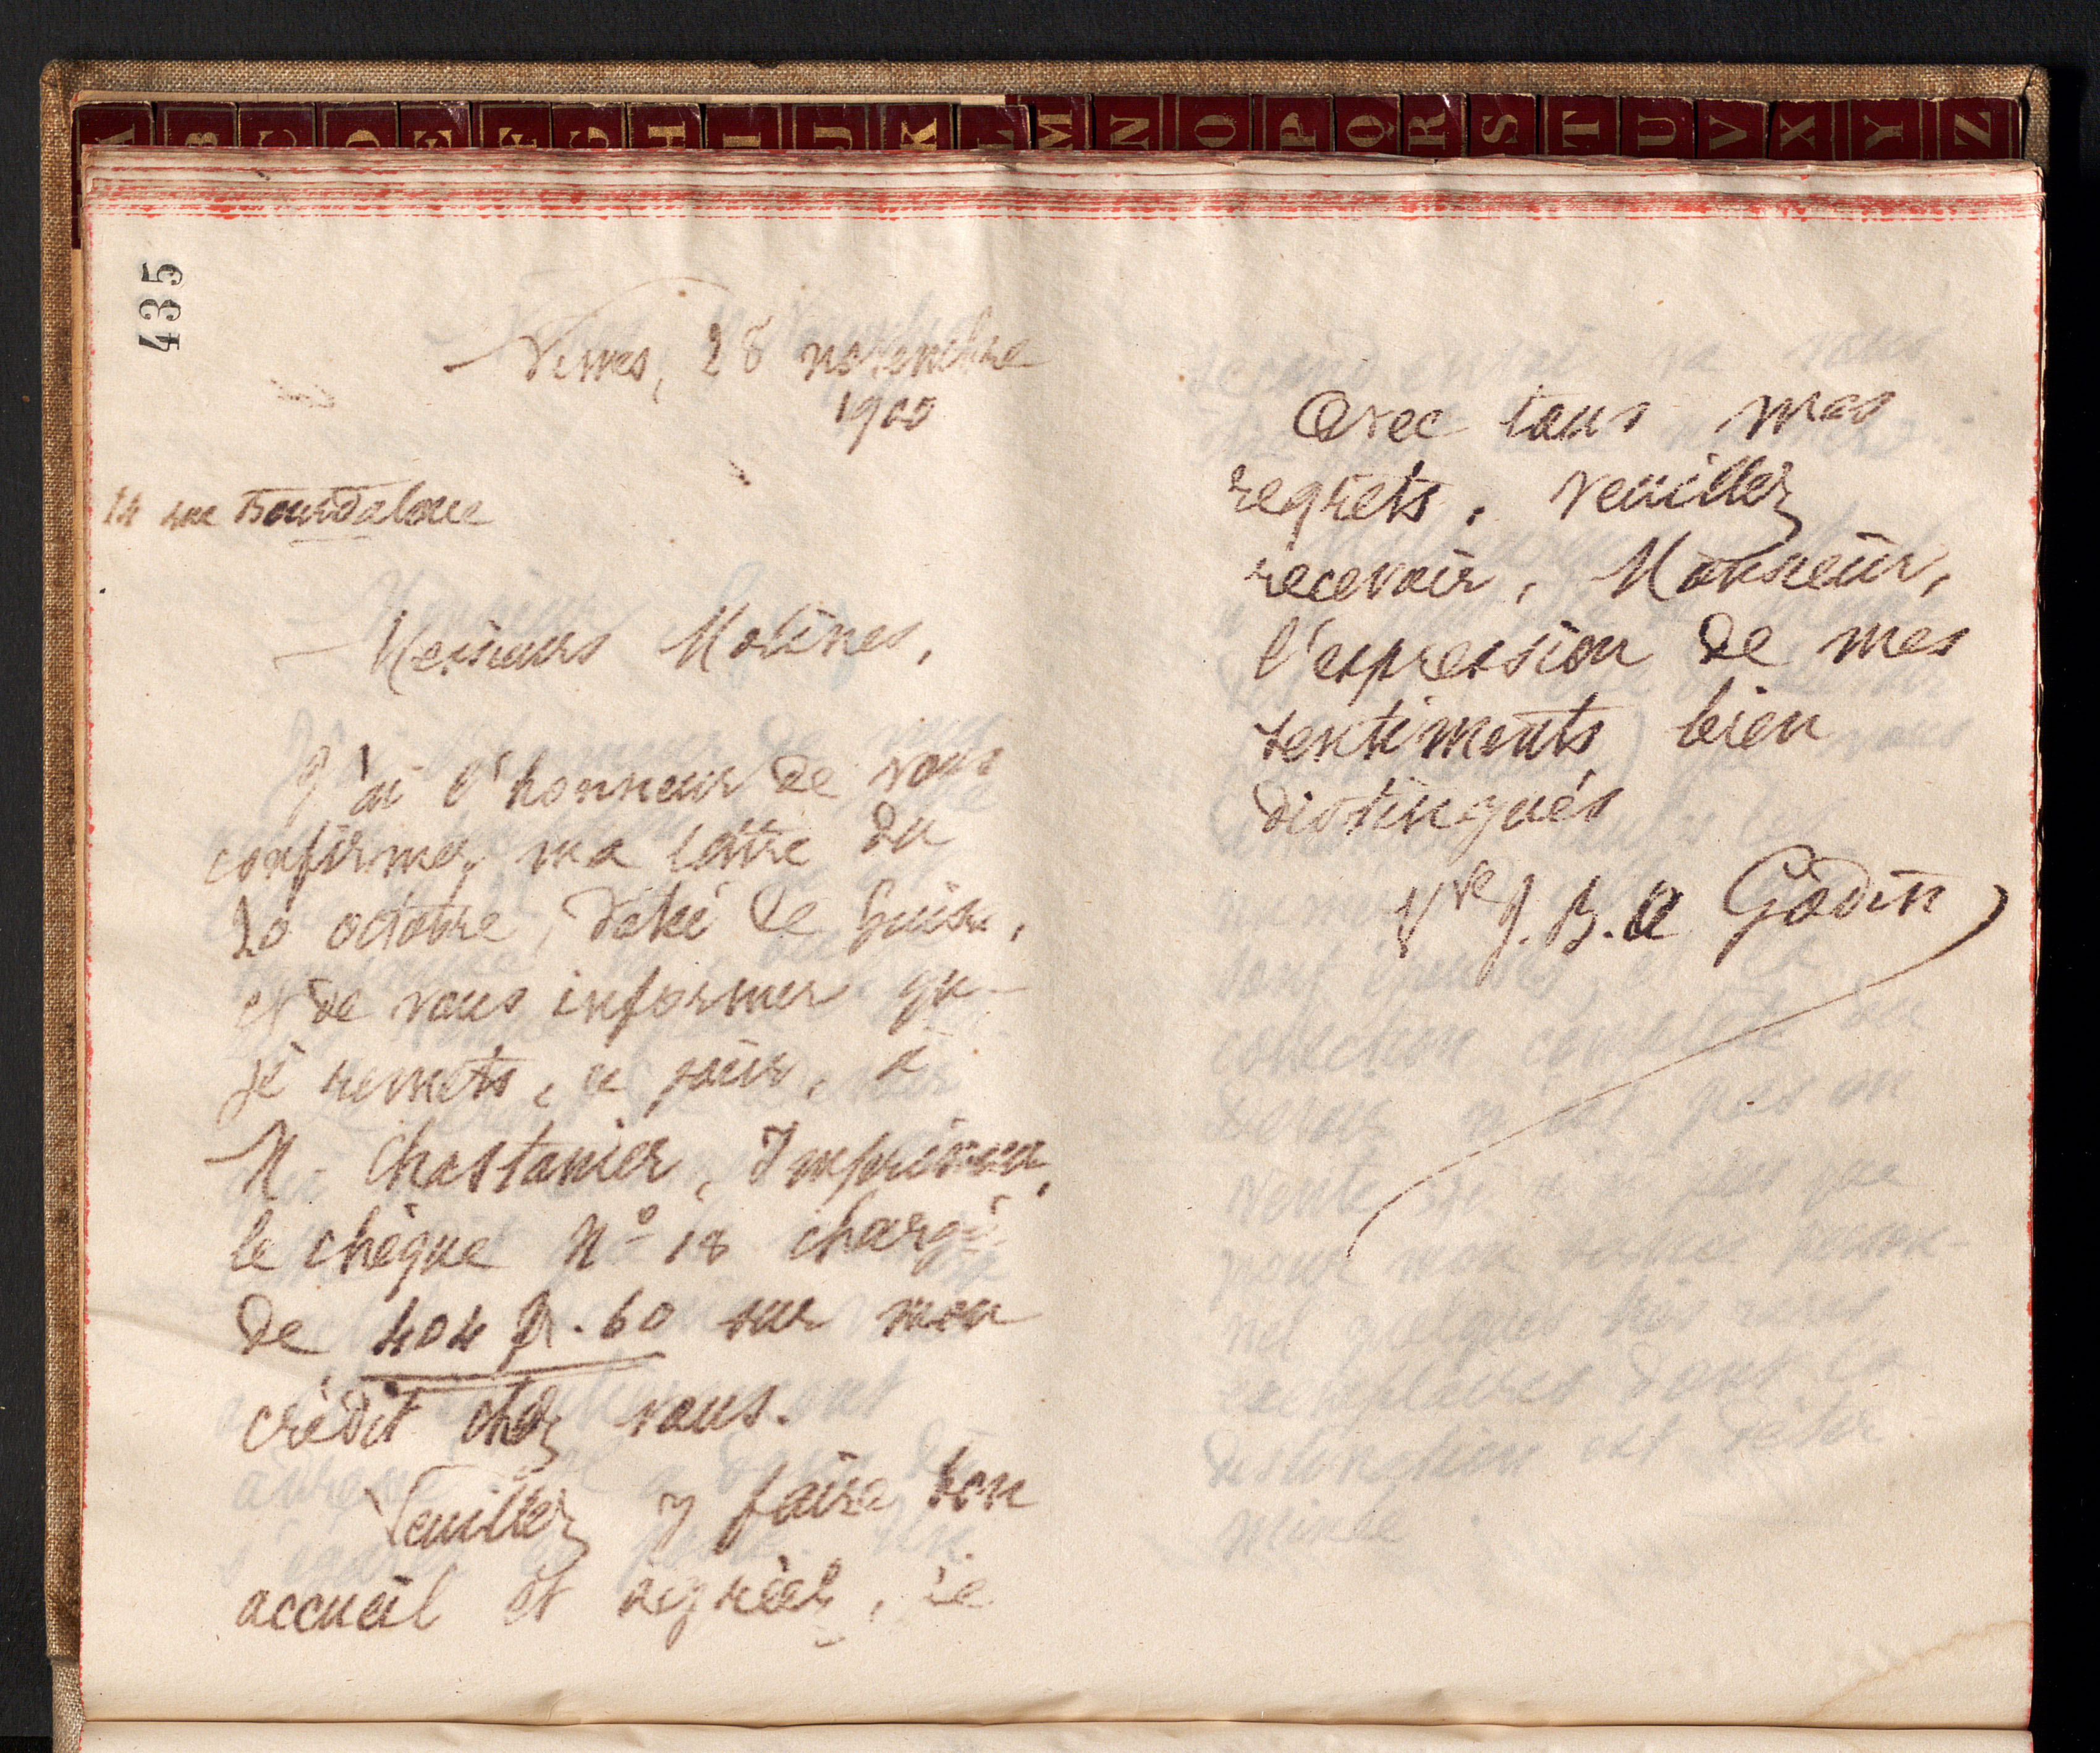 A B C D E F G H I J K L M N O P Q R S T U V X Y Z
435
Nimes, 28 novembre
1900
14 rue Bourdaloue
Messieurs Molines,
J'ai l'honneur de vous
confirmer ma lettre du
20 octobre, daté de Guise,
et de vous informer que
je remets, ce jour, à
M. Chastanier, Imprimeur,
le chèque No 18 chargé
de 404 fr. 60 sur mon
crédit chez vous.
Veuillez y faire bon
accueil et agréer, je
Avec tous mes
regrets, veuillez
recevoir, Monsieur,
l'expression de mes
sentiments bien
distingués
Vve J. B. A Godin